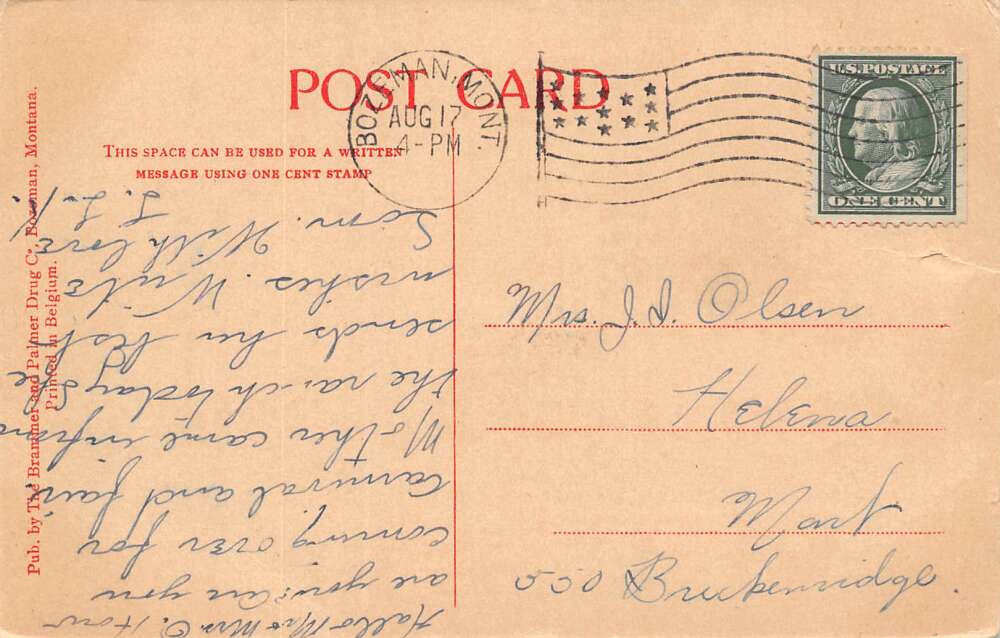 POST CARD
BOZEMAN, MONT.
AUG 17
4-PM
U.S. POSTAGE
ONE CENT
THIS SPACE CAN BE USED FOR A WRITTEN
MESSAGE USING ONE CENT STAMP
Pub. by The Brammer and Palmer Drug Co., Bozeman, Montana.
Printed in Belgium.
Mrs. J. I. Olsen
Helena
Mont
550 Breckenridge.
Hallo Mr & Mrs. O. How
are you? are you
coming over for
Carnival and fair
Mother came in from
the ranch today She
sends her best
wishes. Write
soon. With love